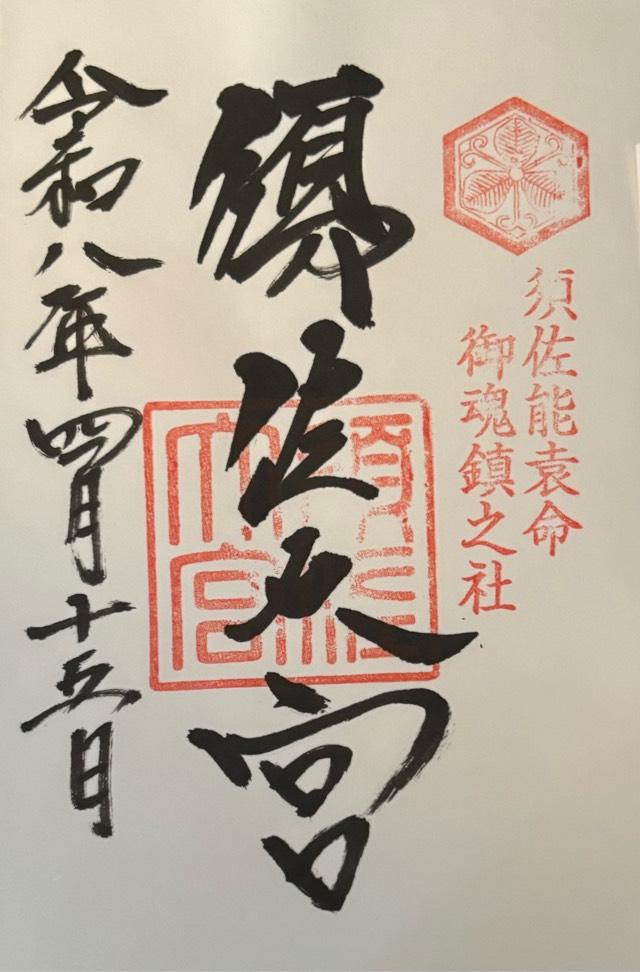 須佐能袁命
御魂鎮之社
須佐大宮
須佐
大宮
令和八年四月十五日